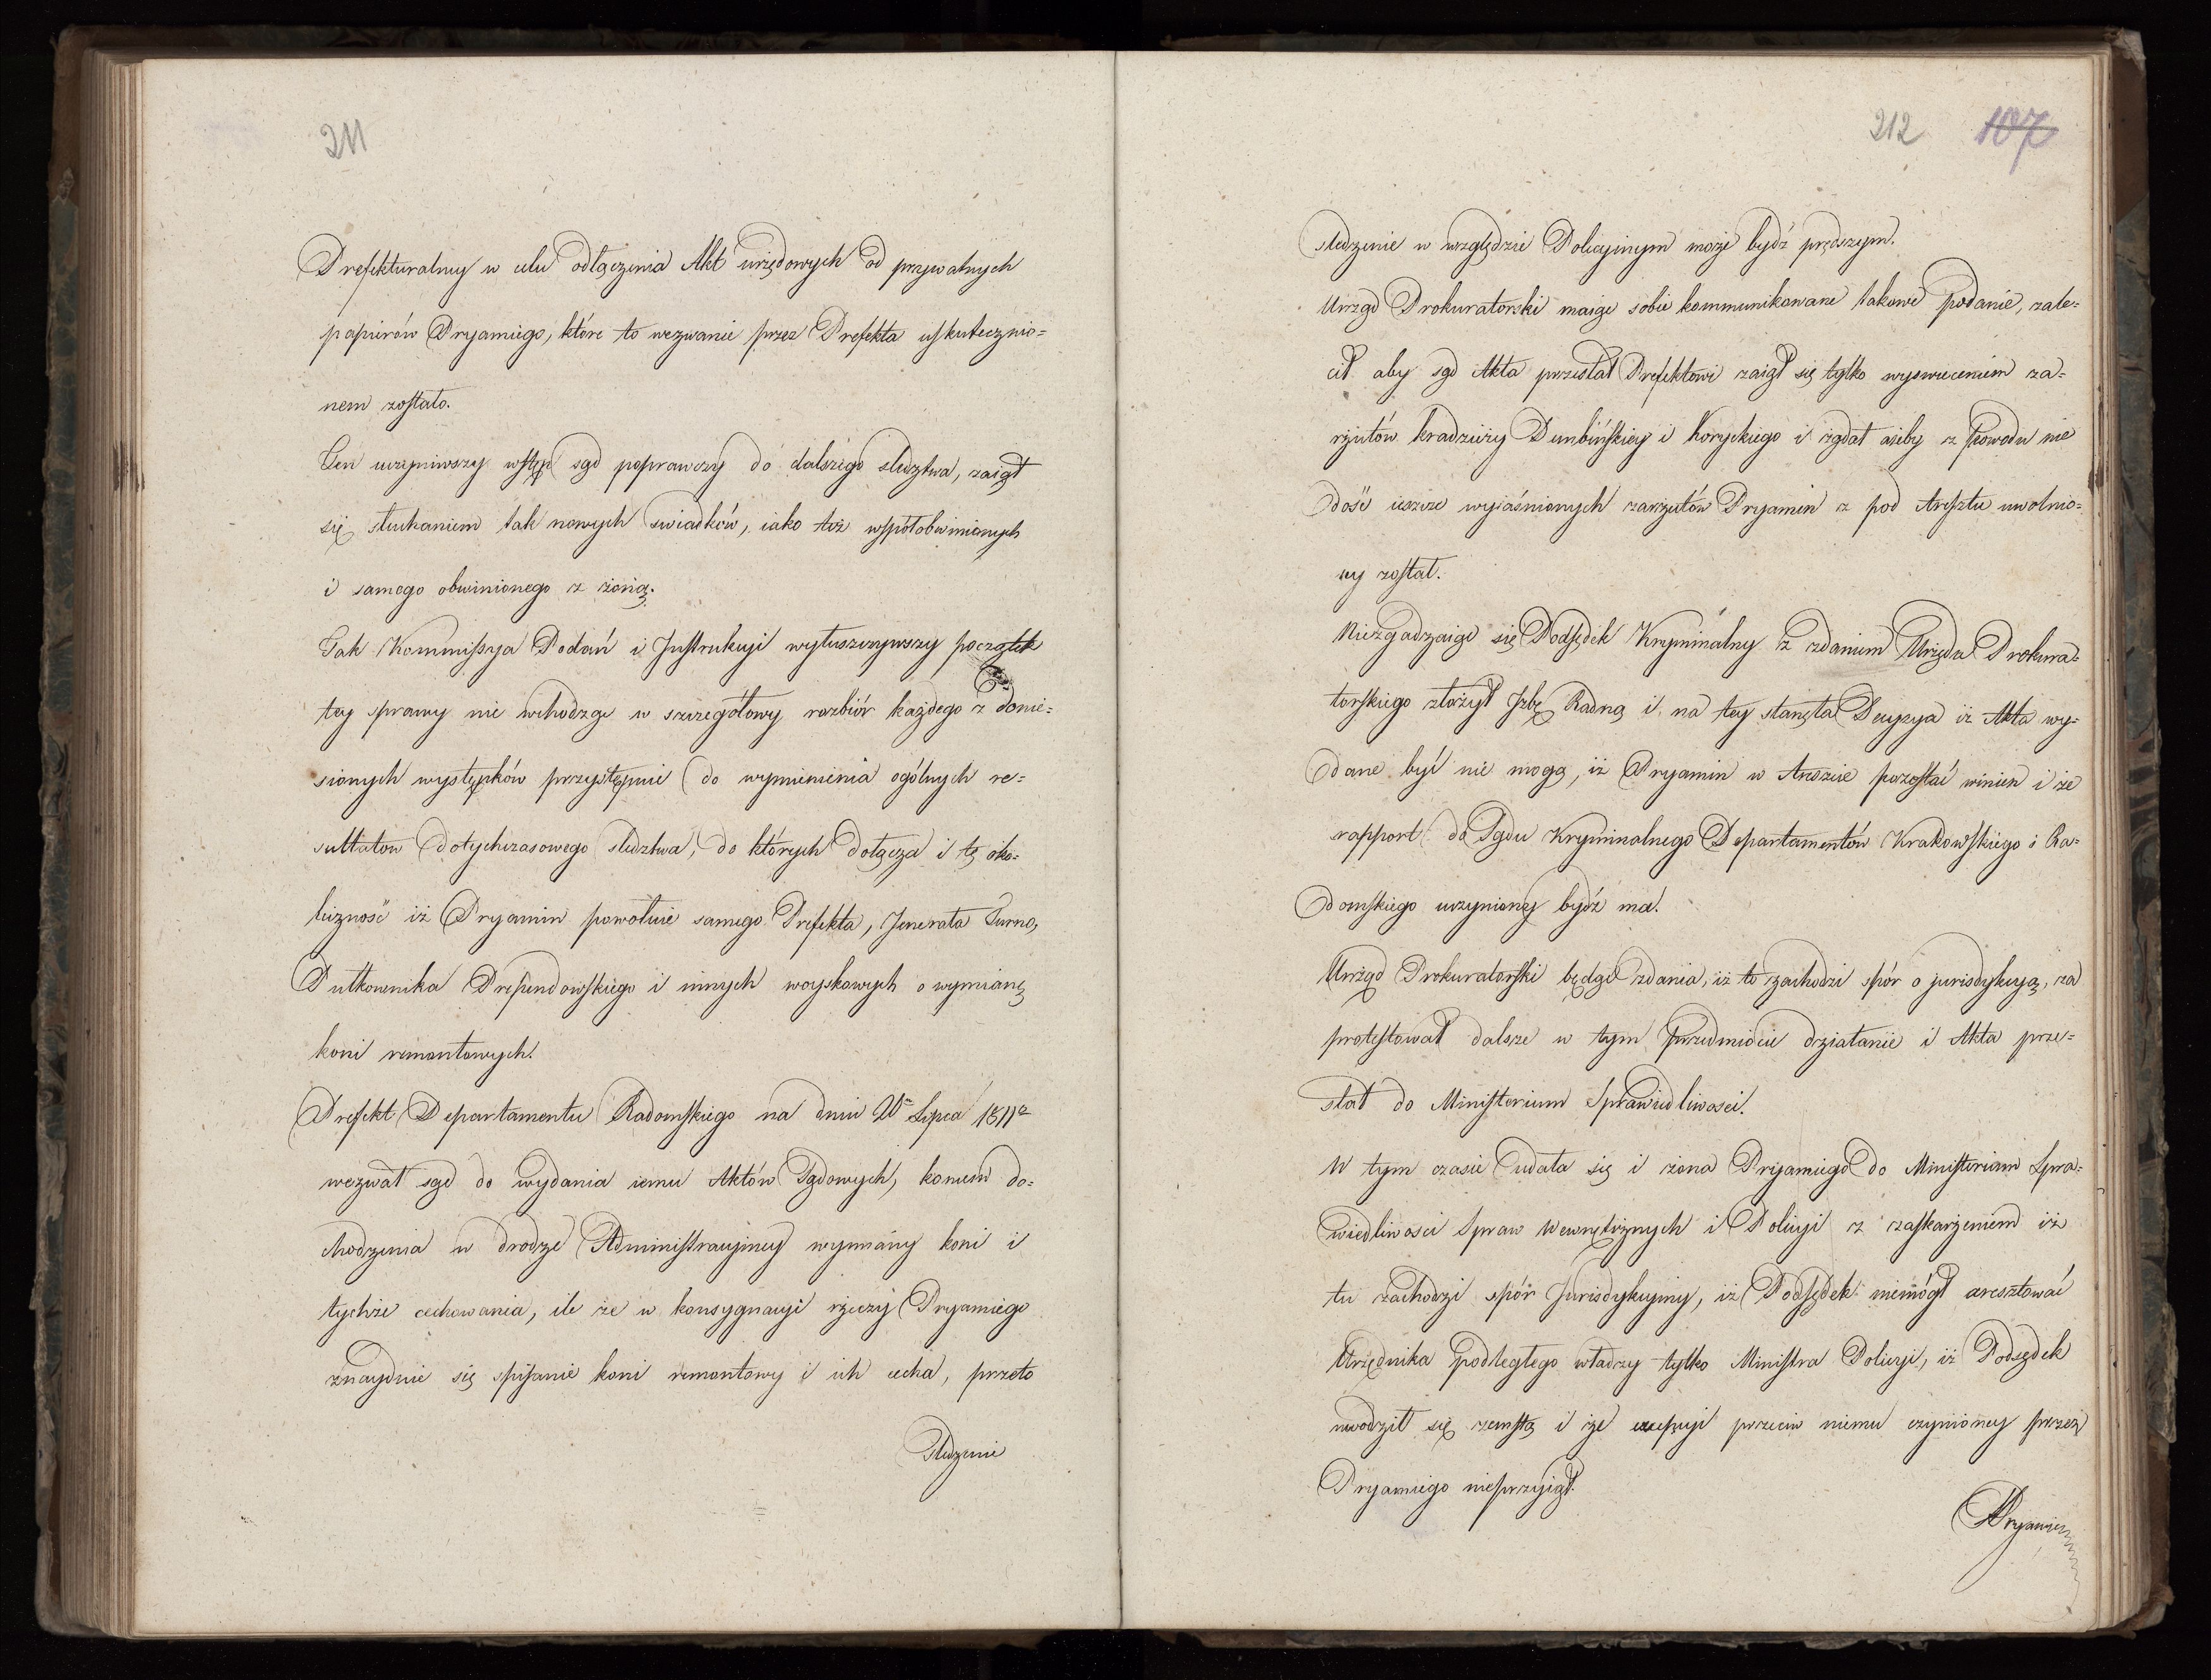 211
Prefekturalney w celu odłączenia Akt urzędowych od prywatnych
papierów Pryamiego, które to wezwanie przez Prefekta uskutecznio=
nem zostało.
Ten uczyniwszy wstęp sąd poprawczy do dalszego sledztwa, zaiął
się słuchaniem tak nowych swiadków, iako też współobwinionych
i samego obwinionego z żoną.
Tak Kommissya Podań i Instrukcyi wyłuszczywszy początek
tey sprawy nie wchodząc w szczegółowy rozbiór każdego z donie=
sionych występków przystępuie do wymienienia ogólnych re=
sultatow dotychczasowego sledztwa, do których dołącza i tę oko=
liczność iż Pryamin powołuie samego Prefekta, Jenerała Turno,
Pułkownika Prespendowskiego i innych woyskowych o wymianę
koni remontowych.
Prefekt Departamentu Radomskiego na dniu Lipca 1811
wezwał sąd do wydania iemu Aktów Sądowych, koncem do=
chodzenia w drodze Administracyiney wymiany koni i
tychże cechowania, ile że w konsygnacyi rzeczy Pryamiego
znayduie się spisanie koni remontowy i ich cecha, przeto
sledzenie
212 107
sledzenie w względzie Policyinym może bydź prędszym.
Urząd Prokuratorski maiąc sobie kommunikowane takowe podanie, zale=
cił aby sąd Akta przesłał Prefektowi zaiął się tylko wyswieceniem za=
rzutów kradzieży Dembińskiey i Koryckiego i żądał ażeby z powodu nie
dość ieszcze wyiaśnionych zarzutów Pryamin z pod Aresztu uwolnio=
ny został.
Niezgadzaiąc się Podsędek Kryminalny z zdaniem Urzędu Prokura=
torskiego złożył Izbę Radną i na tey stanęła Decyzya iż Akta wy=
dane być nie mogą, iż Pryamin w Areszcie pozostać winien i że
rapport do Sądu Kryminalnego Departamentów Krakowskiego i Ra=
domskiego uczyniony bydź ma.
Urząd Prokuratorski będąc zdania, iż tu zachodzi spór o jurisdykcyą, za
protestował dalsze w tym przedmiocie działanie i Akta prze=
słał do Ministerium Sprawiedliwosci.
W tym czasie udała się i żona Pryamiego do Ministeriam Spra=
wiedliwosci Spraw Wewnętrznych i Policyi z zaskarżeniem iż
tu zachodzi spór Jurisdykcyiny, iż Podsędek niemógł aresztować
Urzędnika podległego władzy tylko Ministra Policyi, iż Podsędek
uwodził się zemstą i że excepcyi przeciw niemu czynioney przez
Pryamiego nieprzyiął.
Pryamin